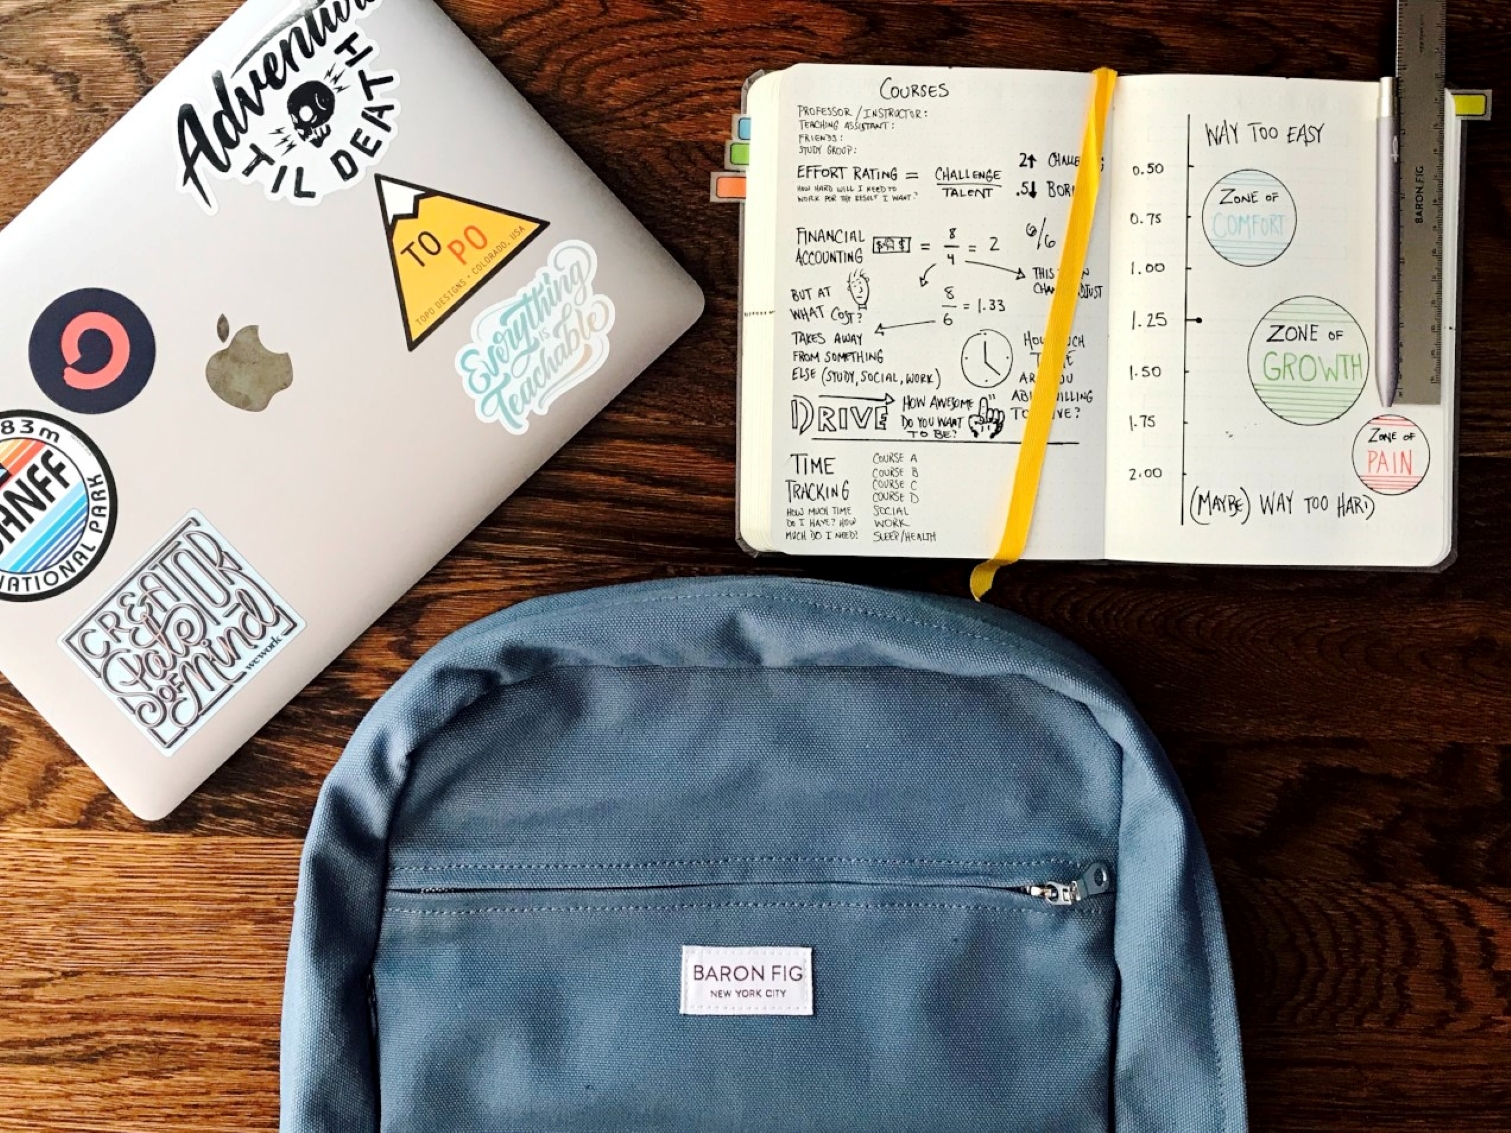 Adventure
TIL DEATH
TO PO
TOPO DESIGNS • COLORADO, USA
Everything
is
Teachable
83m
NATIONAL PARK
CREATOR
State
OF
Mind
wework
COURSES
PROFESSOR/INSTRUCTOR:
TEACHING ASSISTANT:
FRIENDS:
STUDY GROUP:
EFFORT RATING = CHALLENGE
TALENT
HOW HARD WILL I NEED TO
WORK FOR THE RESULT I WANT?
2↑
.5↓
FINANCIAL
ACCOUNTING
= 8/4 = 2
6/6
THIS
BUT AT
WHAT COST?
8/6 = 1.33
TAKES AWAY
FROM SOMETHING
ELSE (STUDY, SOCIAL, WORK)
DRIVE
HOW AWESOME
DO YOU WANT
TO BE?
TIME
TRACKING
HOW MUCH TIME
DO I HAVE? HOW
MUCH DO I NEED?
COURSE A
COURSE B
COURSE C
COURSE D
SOCIAL
WORK
SLEEP/HEALTH
WAY TOO EASY
0.50
0.75
1.00
1.25
1.50
1.75
2.00
ZONE OF
COMFORT
ZONE OF
GROWTH
ZONE OF
PAIN
(MAYBE) WAY TOO HARD
BARON FIG
BARON FIG
NEW YORK CITY